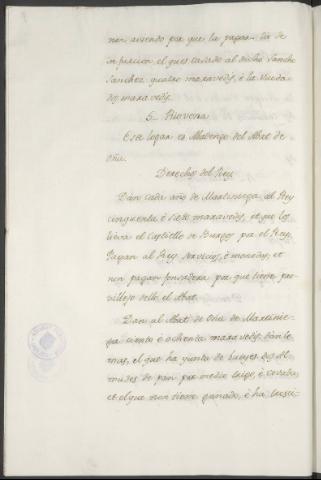 non aviendo por que la pagar. Da de
infurcion el ques casado al dicho Sancho
Sanchez quatro maravedis, é la viuda
dos maravedis.
5. Rioverna
Este logar es Abadengo del Abat de
Oña.
Derechos del Rey
Dan cada año de Martiniega al Rey
cinquenta é siete maravedis, et que los
lieva el Castiello de Burgos por el Rey.
Pagan al Rey servicios, é monedas, et
non pagan fonsadera por que tiene pre-
villejo dello el Abat.
Dan al Abat de Oña de Martinie-
ga ciento é ochenta maravedis: danle
mas, el que ha yunta de bueyes Al-
mudes de pan por medio trigo, é cevada,
et el que non tiene ganado, é ha